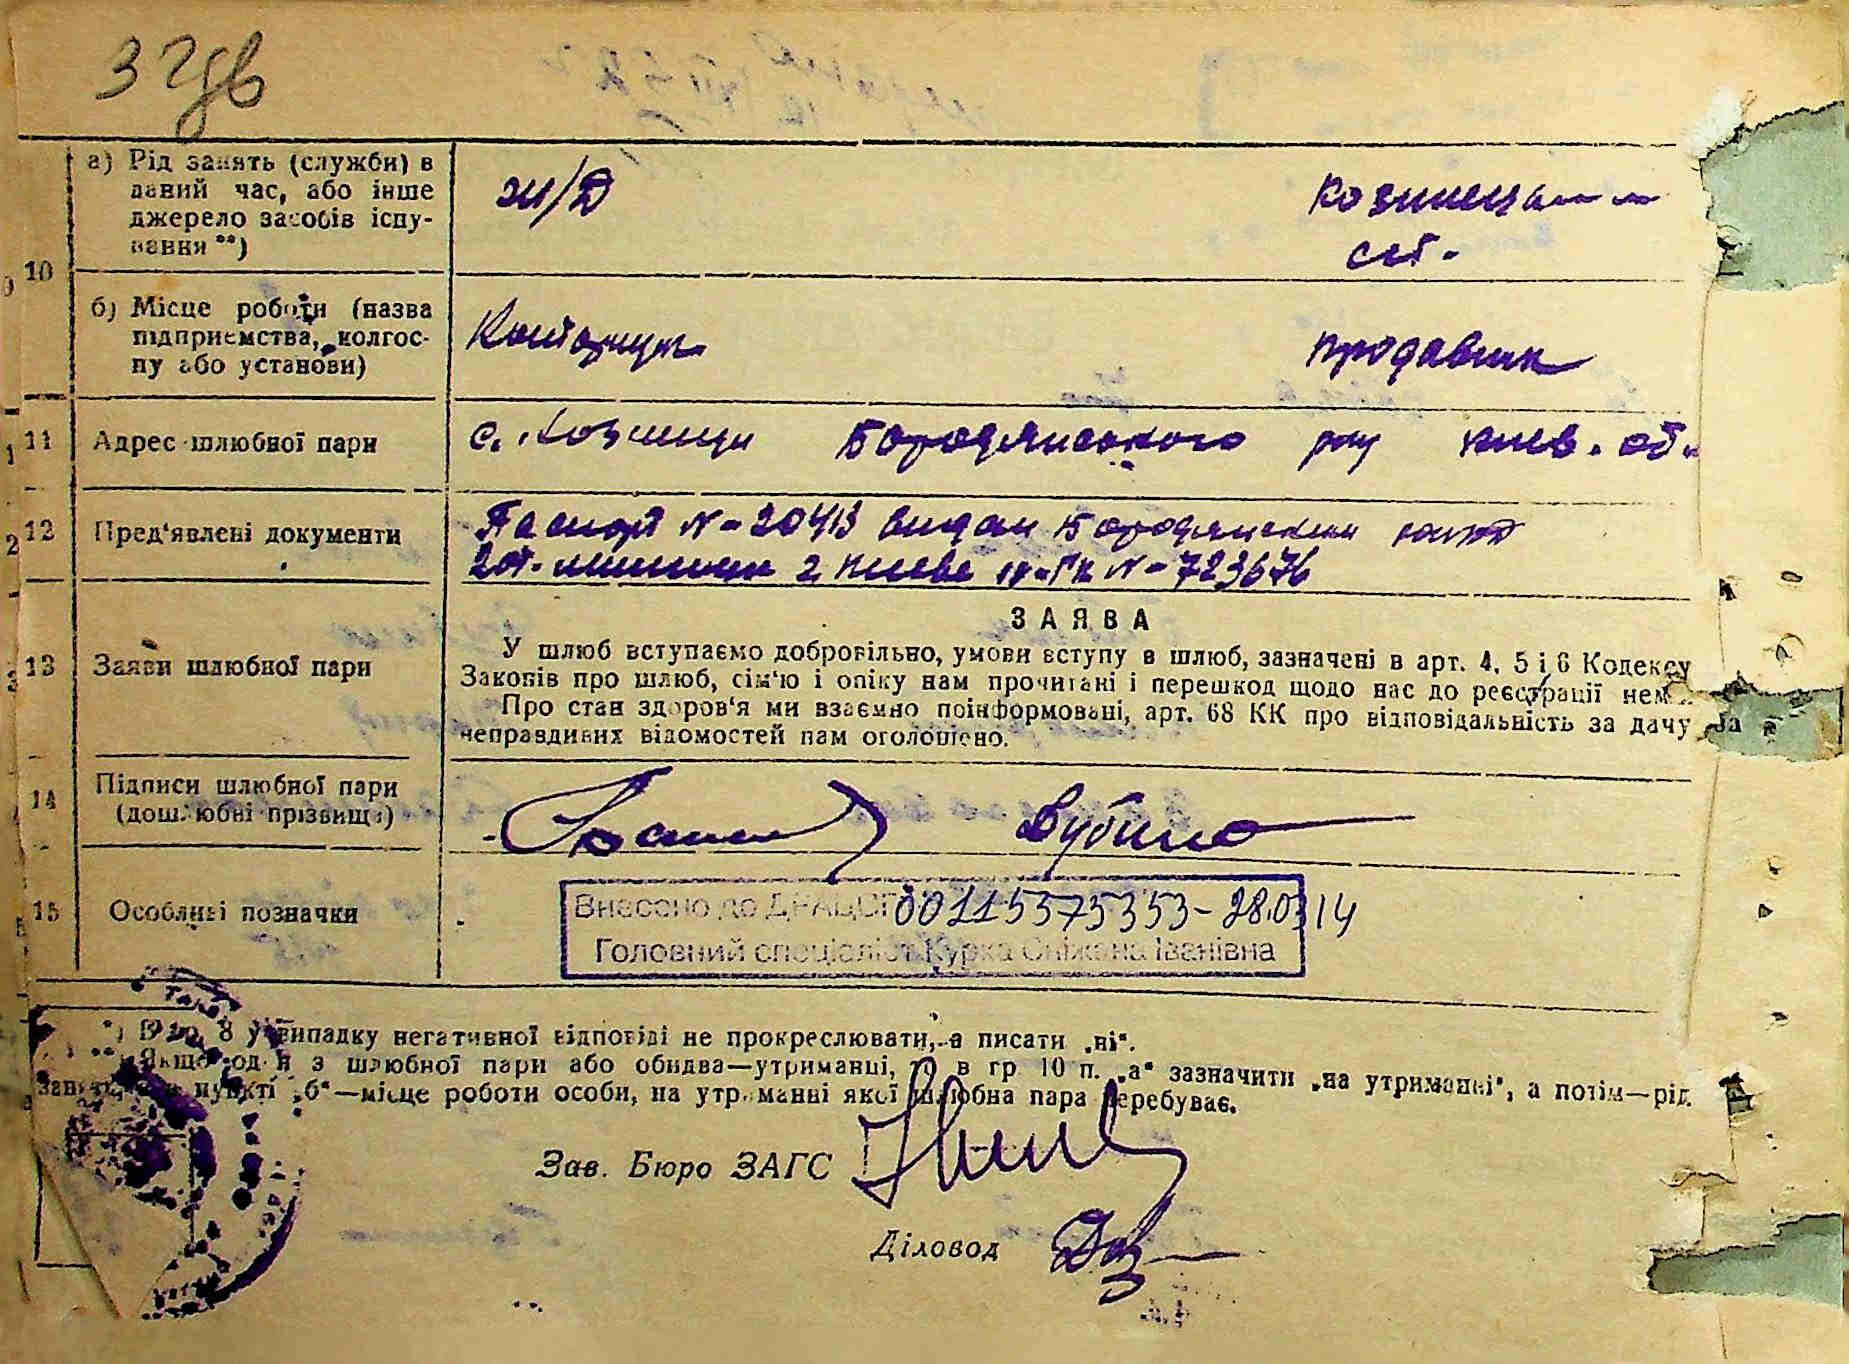 10
а) Рід занять (служби) в
даний час, або інше
джерело засобів існу-
вання **)
ж/д
сст.
б) Місце роботи (назва
підприємства, колгос-
пу або установи)
продавник
11
Адрес шлюбної пари
с. Козинци Бородянського р-ну Киев. об.
12
Пред'явлені документи
Паспорт N-20413 видан Бородянским
2 от. милиции г. Киева N-723676
13
Заяви шлюбної пари
ЗАЯВА
У шлюб вступаємо добровільно, умови вступу в шлюб, зазначені в арт. 4, 5 і 6 Кодексу
Законів про шлюб, сім'ю і опіку нам прочитані і перешкод щодо нас до реєстрації нема.
Про стан здоров'я ми взаємно поінформовані, арт. 68 КК про відповідальність за дачу
неправдивих відомостей нам оголошено.
14
Підписи шлюбної пари
(дошлюбні прізвища)
15
Особливі позначки
Внесено до ДРАЦСГ 00115375353-28.03.14
Головний спеціаліст Курка Сніжана Іванівна
*) В гр. 8 у випадку негативної відповіді не прокреслювати, а писати „ні“.
**) Якщо один з шлюбної пари або обидва—утриманці, то в гр 10 п. „а“ зазначити „на утриманні“, а потім—рід
занять, а в пункті „б“—місце роботи особи, на утриманні якої шлюбна пара перебуває.
Зав. Бюро ЗАГС
Діловод